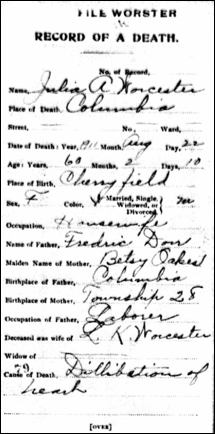 FILE WORSTER
RECORD OF A DEATH.
No. of Record,
Name, Julia A. Worcester
Place of Death, Columbia
Street, No., Ward,
Date of Death: Year, 1911 Month, Aug Day, 22
Age: Years, 60 Months, 2 Days, 10
Place of Birth, Cherryfield
Sex, F Color, W Married, Single, Widowed, or Divorced,
Occupation, Housewife
Name of Father, Fredric Dorr
Maiden Name of Mother, Betsy Oakes
Birthplace of Father, Columbia
Birthplace of Mother, Township 28
Occupation of Father, Laborer
Deceased was wife of L. K. Worcester
Widow of
Cause of Death, Dillibations of
heart
[OVER]